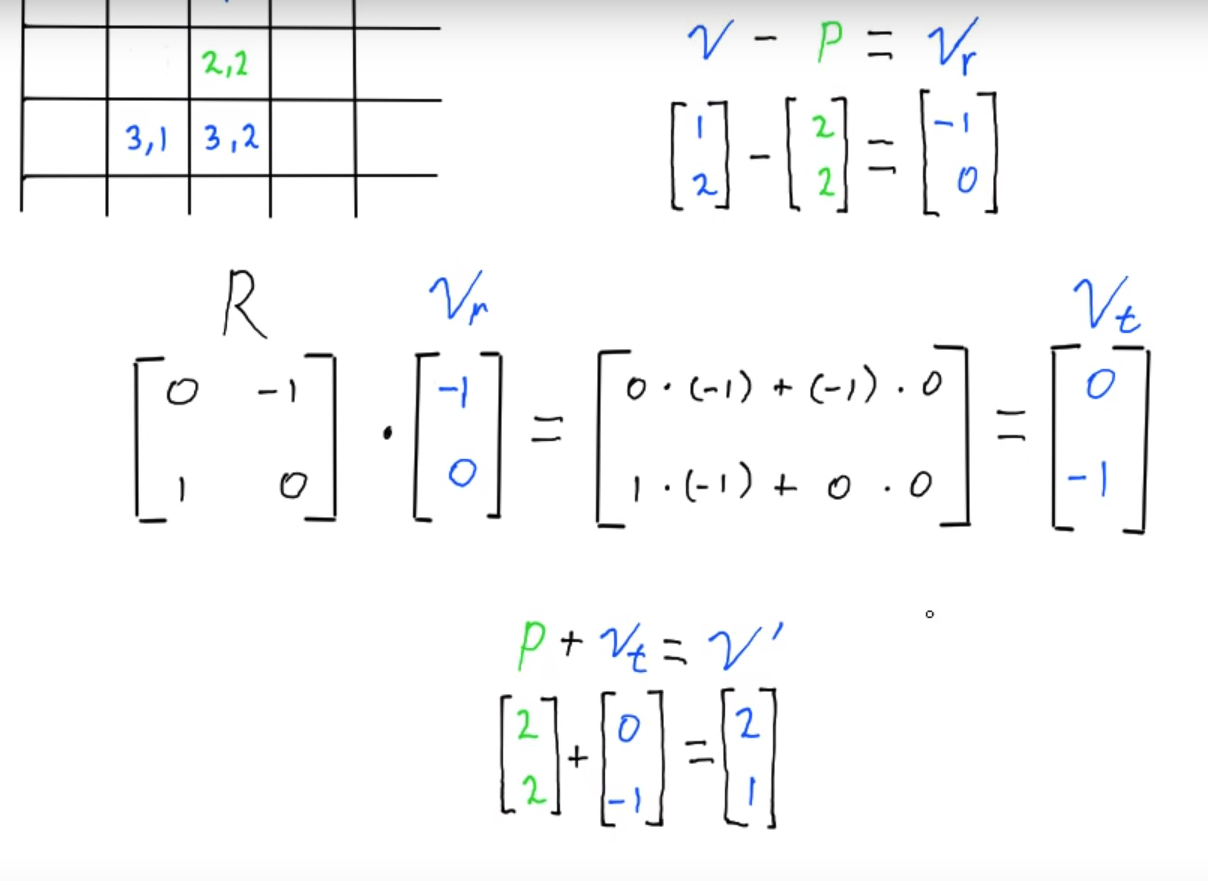 2,2
3,1 3,2
V - P = Vr
[1 2] - [2 2] = [-1 0]
R Vr Vt
[0 -1 1 0] · [-1 0] = [0 · (-1) + (-1) · 0 1 · (-1) + 0 · 0] = [0 -1]
P + Vt = V'
[2 2] + [0 -1] = [2 1]